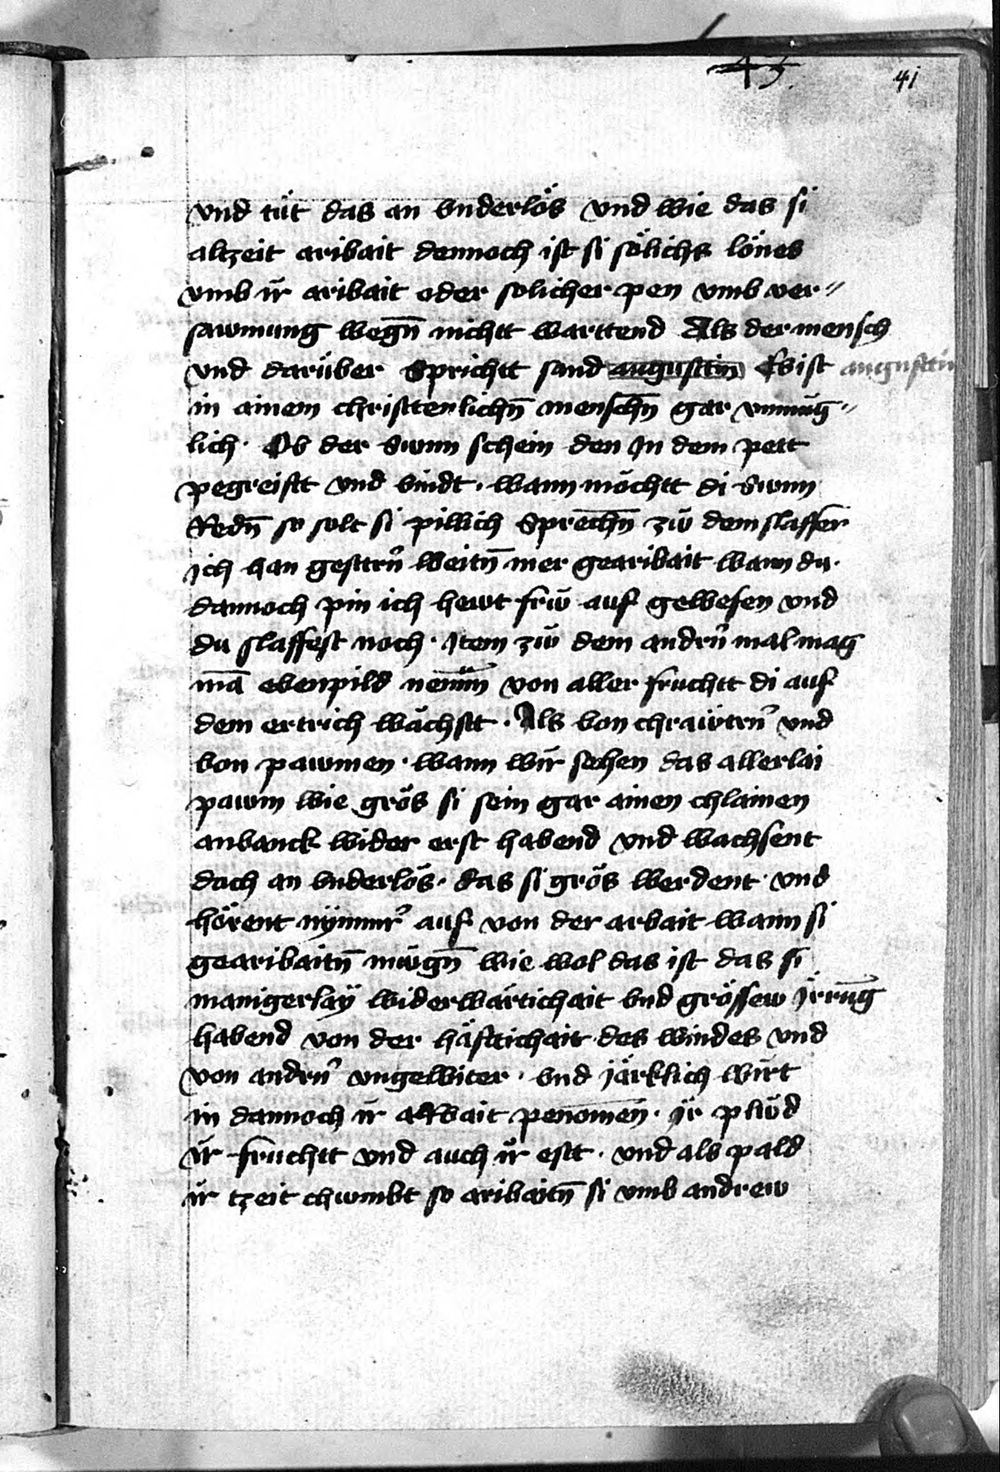 45.
41
vnd tuͤt das an vnderlös vnd wie das si
altzeit aribait dennoch ist si sölichs lönes
vmb ir̈ aribait oder solicher pen vmb ver⸗
sawmung wegn̄ nichtt warttend Als der mensch
vnd darüber Sprichtt sand augustin Es ist augustin
in ainem christtenlichn̄ menschn̄ gar vnmüg⸗
lich · Ob der Swnn schein den In dem pett
pegreiftt vnd vindt · wann möchtt di Swnn
Redn̄ so solt si pillich Sprechn̄ zw̄ dem slaffer
ich han gestern̄ weitn̄ mer gearibait wann du ·
dannoch pin ich hewt frw̄ auf gewesen vnd
du slaffest noch · Item zw̄ dem andrn̄ mal mag
mā ebenpild nemm̄ von aller fruchtt di auf
dem ertrich wächstt · Als von chrawtrn̄ vnd
von pawmen · wann wir̈ sehen das allerlai
pawm wie grös si sein gar ainen chlainen
anvanck wider erst habend vnd wachsent
doch an vnderlös · das si grös werdent · vnd
hörent nÿmmr̄ auf von der arbait wann si
gearibaitn̄ mügn̄ wie wol das ist das si
manigerlaÿ widerwärtichait vnd grössew Irrung
habend von der häftichait des windes vnd
von andrn̄ vngewiter · vnd järklich wirt
in dannoch ir̈ arbait penomen̄ · Ir̈ plüd
ir̈ fruchtt vnd auch ir̈ estt · vnd als pald
ir̈ tzeit chwmbt so aribaitn̄ si vmb andrew